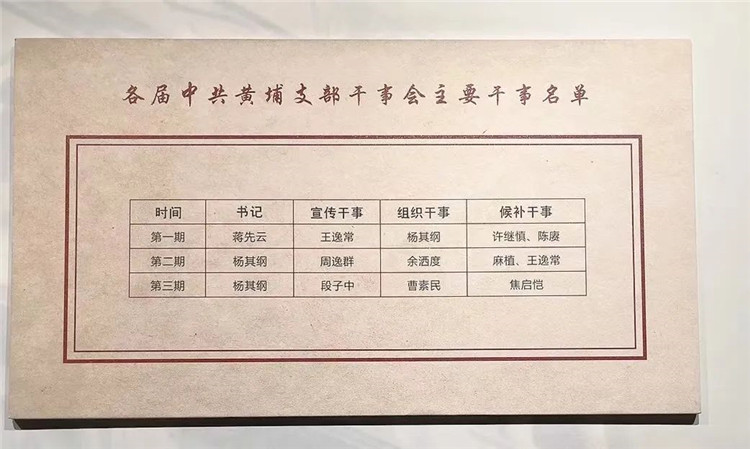 各届中共黄埔支部干事会主要干事名单
时间 书记 宣传干事 组织干事 候补干事
第一期 蒋先云 王逸常 杨其纲 许继慎、陈赓
第二期 杨其纲 周逸群 余洒度 麻植、王逸常
第三期 杨其纲 段子中 曹素民 焦启恺